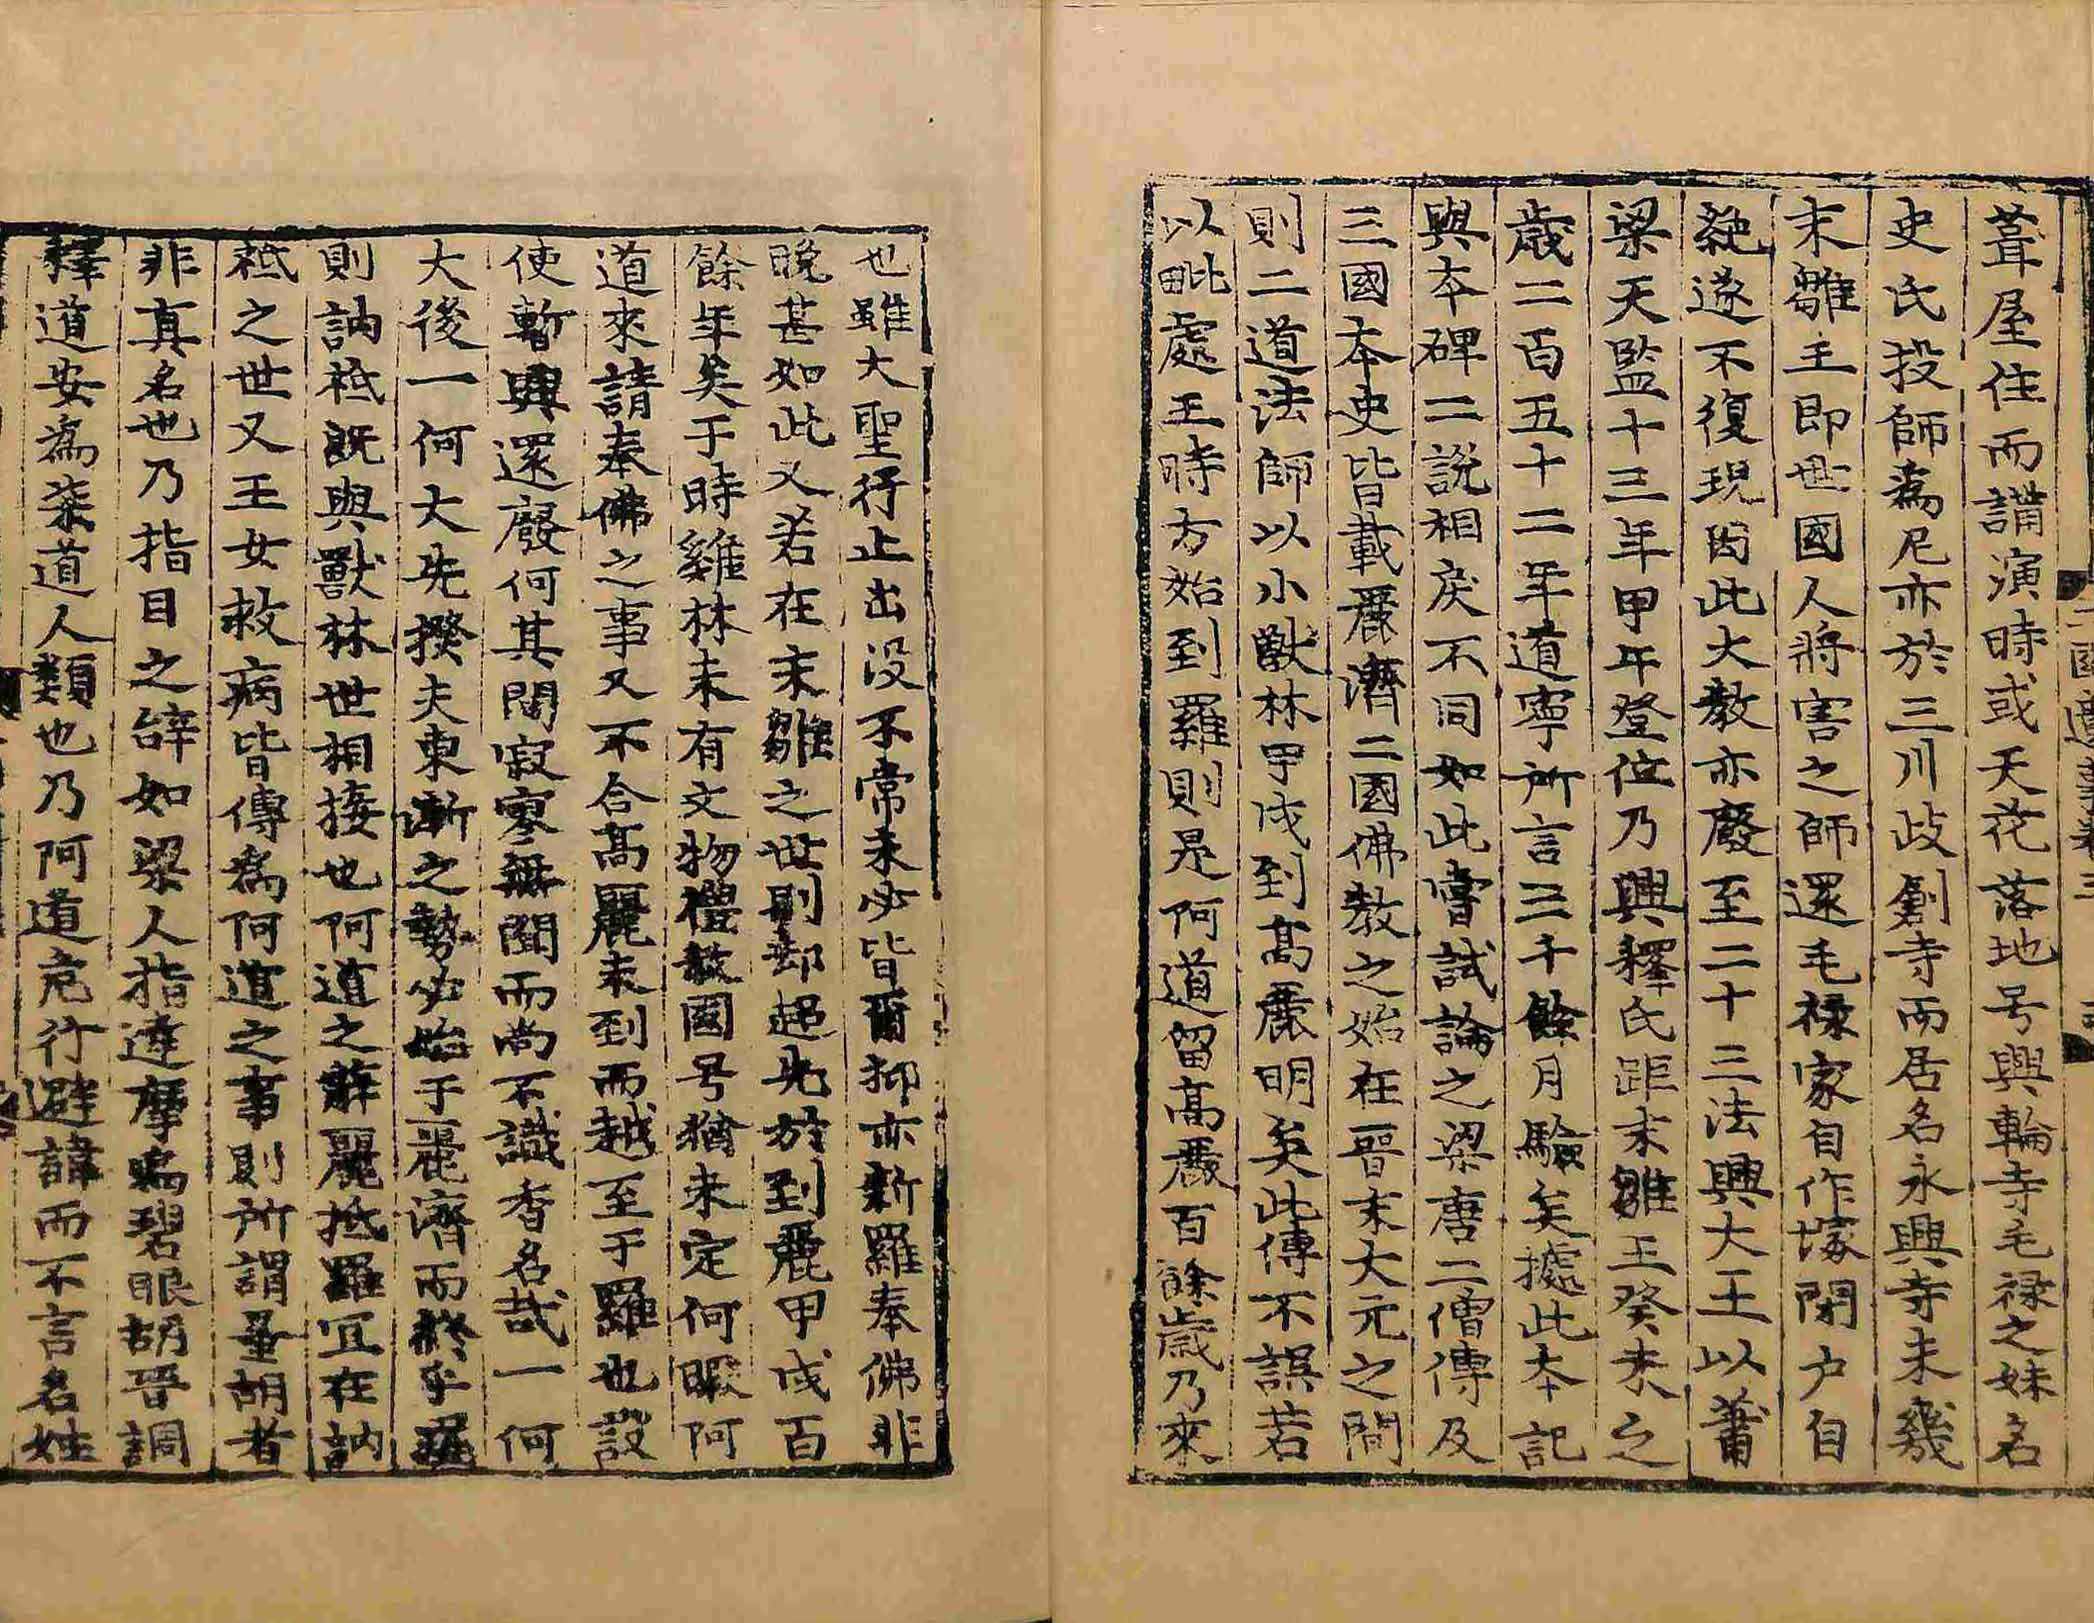 葺屋住而講演時或天花落地号興輪寺毛禄之妹名
史氏投師爲尼亦於三川歧創寺而居名永興寺未幾
末雛王即世國人將害之師還毛禄家自作塚閉户自
絶遂不復現因此大敎亦廢至二十三法興大王以蕭
梁天監十三年甲午登位乃興釋氏距末雛王癸未之
歲二百五十二年道寧所言三千餘月驗矣據此本記
與本碑二說相戾不同如此甞試論之梁唐二僧傳及
三國本史皆載麗濟二國佛敎之始在晋末大元之間
則二道法師以小獸林甲戌到高麗明矣此傳不誤若
以毗處王時方始到羅則是阿道留高麗百餘歲乃來
也雖大聖行止出没不常未必皆爾抑亦新羅奉佛非
晚甚如此又若在末雛之世則却超先於到麗甲戌百
餘年矣于時雞林未有文物禮敎國号猶未定何暇阿
道來請奉佛之事又不合高麗未到而越至于羅也設
使暫興還廢何其間寂寥無聞而尚不識香名哉一何
大後一何大先揆夫東漸之勢必始于麗濟而終乎羅
則訥祗旣與獸林世相接也阿道之辭麗抵羅宜在訥
祗之世又王女救病皆傳爲阿道之事則所謂墨胡者
非真名也乃指目之辝如梁人指達摩爲碧眼胡晋調
釋道安爲柒道人類也乃阿道危行避諱而不言名姓